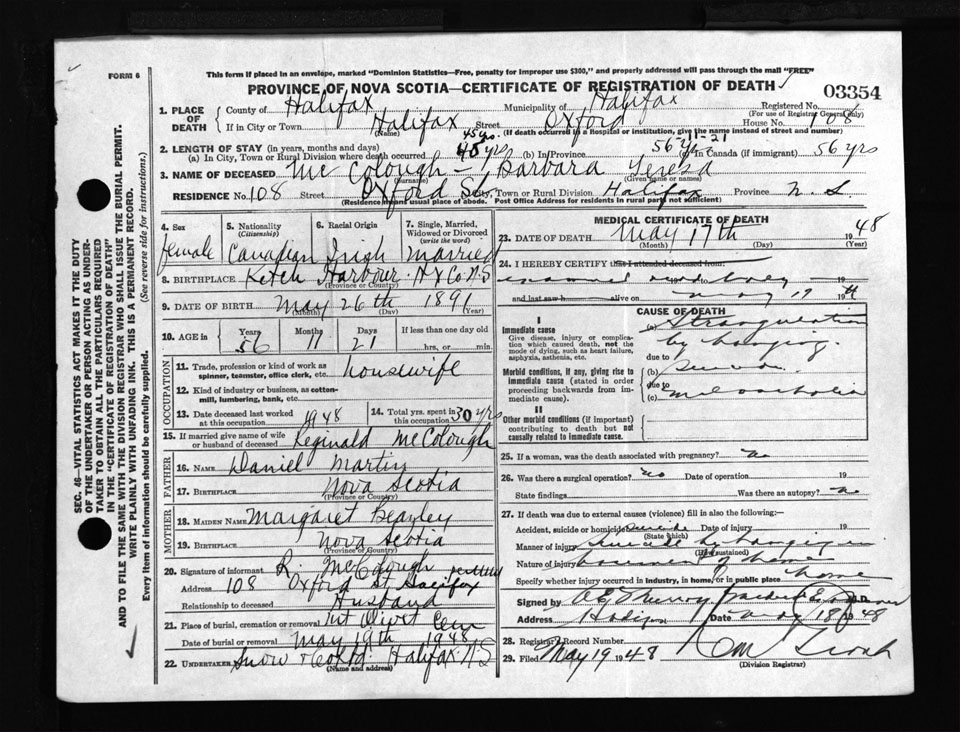 FORM 6
This form if placed in an envelope, marked "Dominion Statistics—Free, penalty for improper use $300," and properly addressed will pass through the mail "FREE"
PROVINCE OF NOVA SCOTIA—CERTIFICATE OF REGISTRATION OF DEATH
03354
1. PLACE OF DEATH County of Halifax Municipality of Halifax Registered No.
(For use of Registrar General only)
If in City or Town Halifax Street Oxford House No. 108
(Name) (If death occurred in a Hospital or institution, give the name instead of street and number)
2. LENGTH OF STAY (in years, months and days) 45 yrs. 56-11-21
(a) In City, Town or Rural Division where death occurred 45 yrs (b) In Province 56 yrs (c) In Canada (if immigrant) 56 yrs
3. NAME OF DECEASED Mc Colough - Barbara Teresa
(Surname) (Given name or names)
RESIDENCE No. 108 Street Oxford St City, Town or Rural Division Halifax Province N. S.
(Residence means usual place of abode. Post Office Address for residents in rural parts not sufficient)
4. Sex 5. Nationality (Citizenship) 6. Racial Origin 7. Single, Married, Widowed or Divorced (write the word)
female Canadian Irish Married
8. BIRTHPLACE Ketch Harbour Hx Co. N.S
(Province or Country)
9. DATE OF BIRTH May 26th 1891
(Month) (Day) (Year)
10. AGE in Years Months Days If less than one day old
56 11 21 hrs. or min.
OCCUPATION
11. Trade, profession or kind of work as spinner, teamster, office clerk, etc. housewife
12. Kind of industry or business, as cotton-mill, lumbering, bank, etc.
13. Date deceased last worked at this occupation 1948 14. Total yrs. spent in this occupation 30 yrs
15. If married give name of wife or husband of deceased Reginald McColough
FATHER
16. NAME Daniel Martin
17. BIRTHPLACE Nova Scotia
(Province or Country)
MOTHER
18. MAIDEN NAME Margaret Beazley
19. BIRTHPLACE Nova Scotia
(Province or Country)
20. Signature of informant R. McColough
Address 108 Oxford St Halifax
Relationship to deceased Husband
21. Place of burial, cremation or removal Mt Olivet Cem
Date of burial or removal May 19th 1948
22. UNDERTAKER Snow & Co Ltd. Halifax N.S
(Name and address)
MEDICAL CERTIFICATE OF DEATH
23. DATE OF DEATH May 17th 1948
(Month) (Day) (Year)
24. I HEREBY CERTIFY that I attended deceased from:
examined dead body 19
and last saw h alive on May 17 19
CAUSE OF DEATH
I
Immediate cause (a) Strangulation
Give disease, injury or complication which caused death, not the mode of dying, such as heart failure, asphyxia, asthenia, etc.
by hanging.
due to
Morbid conditions, if any, giving rise to immediate cause (stated in order proceeding backwards from immediate cause). (b)
due to
(c) melancholia
II
Other morbid conditions (if important) contributing to death but not causally related to immediate cause.
25. If a woman, was the death associated with pregnancy? no
26. Was there a surgical operation? no Date of operation 19
State findings Was there an autopsy? no
27. If death was due to external causes (violence) fill in also the following:—
Accident, suicide or homicide? suicide Date of injury 19
(State which)
Manner of injury suicide by hanging in
(How sustained)
Nature of injury basement of home
Specify whether injury occurred in industry, in home, or in public place home
Signed by M.D.
Address Halifax Date May 18 1948
28. Registrar's Record Number
29. Filed May 19 1948
(Division Registrar)
SEC. 46—VITAL STATISTICS ACT MAKES IT THE DUTY
OF THE UNDERTAKER OR PERSON ACTING AS UNDER-
TAKER TO OBTAIN ALL THE PARTICULARS REQUIRED
IN THE "CERTIFICATE OF REGISTRATION OF DEATH"
AND TO FILE THE SAME WITH THE DIVISION REGISTRAR WHO SHALL ISSUE THE BURIAL PERMIT.
WRITE PLAINLY WITH UNFADING INK. THIS IS A PERMANENT RECORD.
Every item of information should be carefully supplied. (See reverse side for instructions.)